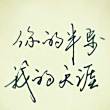 你的半集
我的天涯